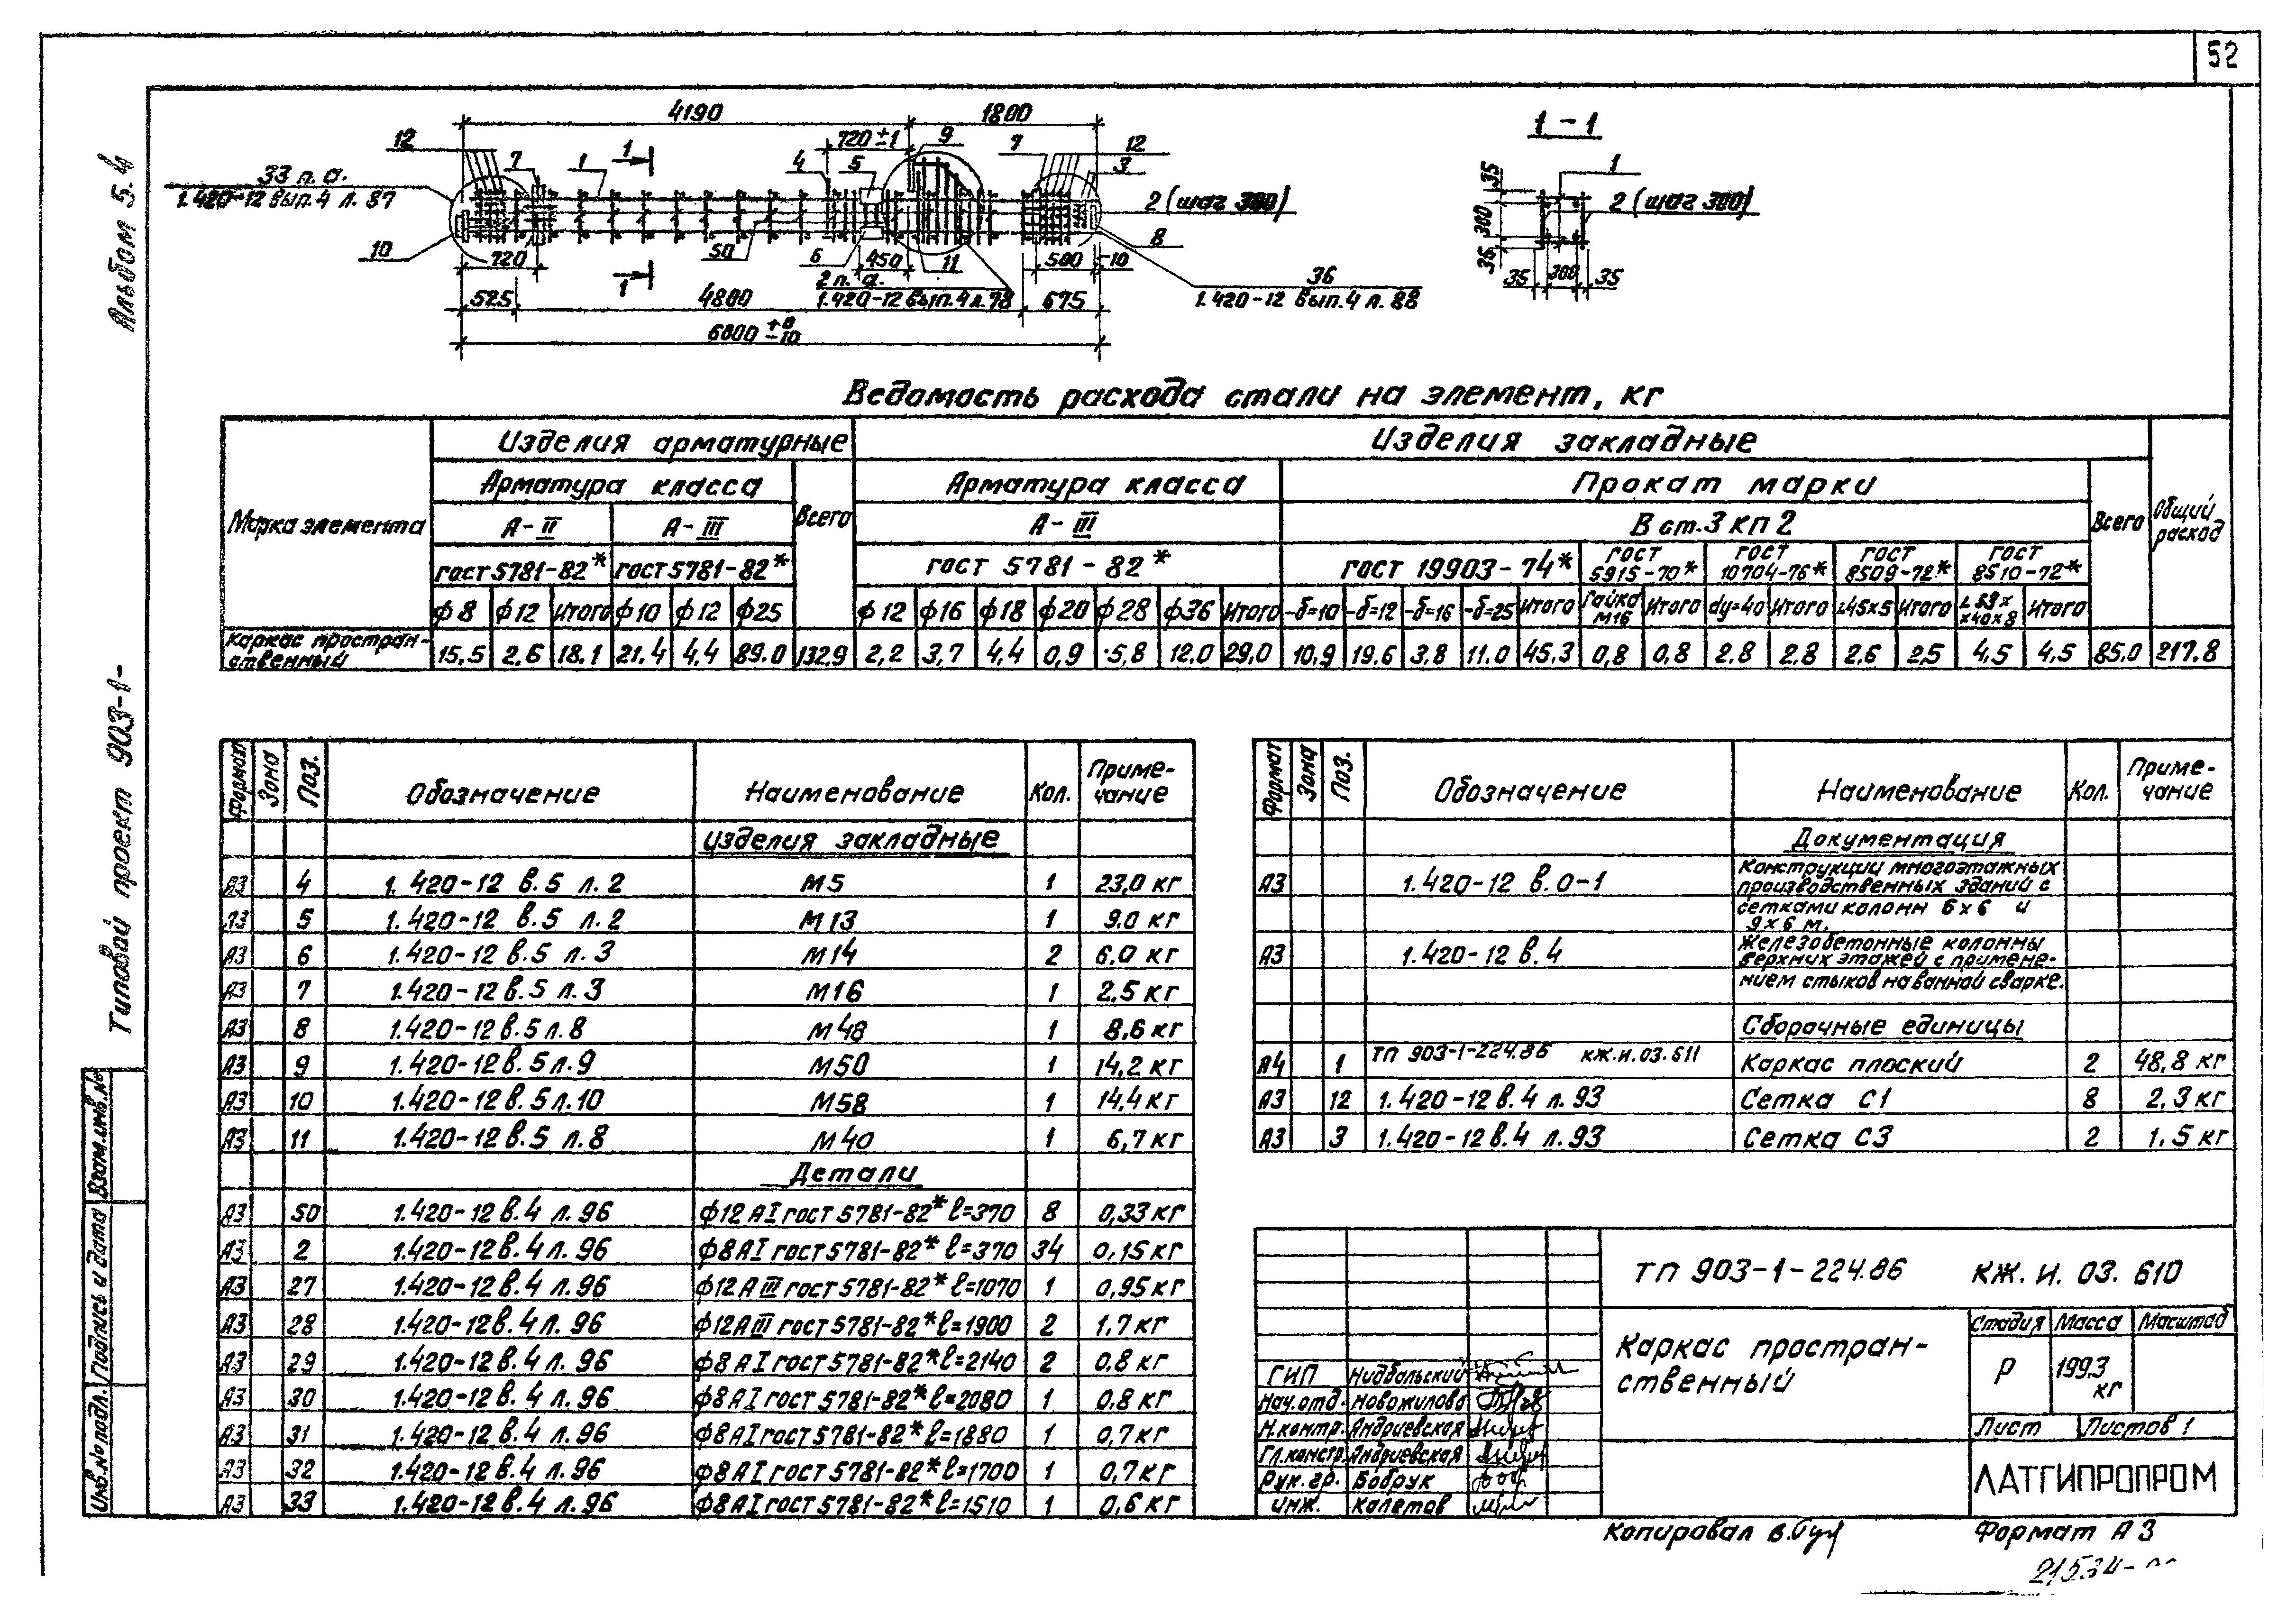 52
4190
1800
1-1
720±1
12
7
1
1
4
5
9
7
12
3
33 п. а.
1.420-12 вып.4 л. 87
2 (шаг 300)
10
720
50
6
450
11
500
10
8
2 п. а.
1.420-12 вып.4 л.78
36
1.420-12 вып.4 л. 88
1
525
4800
675
6000 +0 -10
35
300
35
1
2 (шаг 300)
35
300
35
Альбом 5.4
Типовой проект 903-1-
Ведомость расхода стали на элемент, кг
Марка элемента
Изделия арматурные
Изделия закладные
Общий расход
Арматура класса
Всего
Арматура класса
Прокат марки
Всего
А-II
А-III
А-III
В ст.3 кп 2
гост 5781-82*
гост 5781-82*
гост 5781-82*
гост 19903-74*
гост 5915-70*
гост 10704-76*
гост 8509-72*
гост 8510-72*
ф8 ф12 Итого ф10 ф12 ф25 ф12 ф16 ф18 ф20 ф28 ф36 Итого -δ=10 -δ=12 -δ=16 -δ=25 Итого Гайка М16 Итого dy=40 Итого ∟45×5 Итого ×40×8 Итого
Каркас пространственный 15,5 2,6 18,1 21,4 4,4 89.0 132,9 2,2 3,7 4,4 0,9 5,8 12.0 29,0 10,9 19.6 3.8 11.0 45.3 0,8 0,8 2.8 2.8 2.6 2,5 4,5 4,5 85.0 217.8
Формат Зона Поз. Обозначение Наименование Кол. Примечание
Изделия закладные
А3 4 1.420-12 в.5 л.2 М5 1 23,0 кг
А3 5 1.420-12 в.5 л.2 М13 1 9.0 кг
А3 6 1.420-12 в.5 л.3 М14 2 6,0 кг
А3 7 1.420-12 в.5 л.3 М16 1 2.5 кг
А3 8 1.420-12 в.5 л.8 М48 1 8,6 кг
А3 9 1.420-12 в.5 л.9 М50 1 14,2 кг
А3 10 1.420-12 в.5 л.10 М58 1 14,4 кг
А3 11 1.420-12 в.5 л.8 М40 1 6,7 кг
Детали
А3 50 1.420-12 в.4 л.96 ф12 АI гост 5781-82* ℓ=370 8 0,33 кг
А3 2 1.420-12 в.4 л.96 ф8 АI гост 5781-82* ℓ=370 34 0,15 кг
А3 27 1.420-12 в.4 л.96 ф12 АIII гост 5781-82* ℓ=1070 1 0,95 кг
А3 28 1.420-12 в.4 л.96 ф12 АIII гост 5781-82* ℓ=1900 2 1,7 кг
А3 29 1.420-12 в.4 л.96 ф8 АI гост 5781-82* ℓ=2140 2 0,8 кг
А3 30 1.420-12 в.4 л.96 ф8 АI гост 5781-82* ℓ=2080 1 0.8 кг
А3 31 1.420-12 в.4 л.96 ф8 АI гост 5781-82* ℓ=1880 1 0,7 кг
А3 32 1.420-12 в.4 л.96 ф8 АI гост 5781-82* ℓ=1700 1 0,7 кг
А3 33 1.420-12 в.4 л.96 ф8 АI гост 5781-82* ℓ=1510 1 0,6 кг
Формат Зона Поз. Обозначение Наименование Кол. Примечание
Документация
А3 1.420-12 в.0-1 Конструкции многоэтажных
производственных зданий с
сетками колонн 6×6 и
9×6 м.
А3 1.420-12 в.4 Железобетонные колонны
верхних этажей с примене-
нием стыков на ванной сварке.
Сборочные единицы
А4 1 ТП 903-1-224.86 КЖ.И.03.611 Каркас плоский 2 48,8 кг
А3 12 1.420-12 в.4 л.93 Сетка С1 8 2,3 кг
А3 3 1.420-12 в.4 л.93 Сетка С3 2 1.5 кг
ТП 903-1-224.86 КЖ. И. 03. 610
Каркас простран-
ственный
Стадия Масса Масштаб
Р 199.3 кг
Лист Листов 1
ЛАТГИПРОПРОМ
ГИП Нидбальский
Нач.отд. Новожилова
Н.контр. Андриевская
Гл.констр. Андриевская
Рук. гр. Бобрук
инж. Калетов
Взам.инв.№
Подпись и дата
Инв.№ подл.
Копировал
Формат А3
21534-